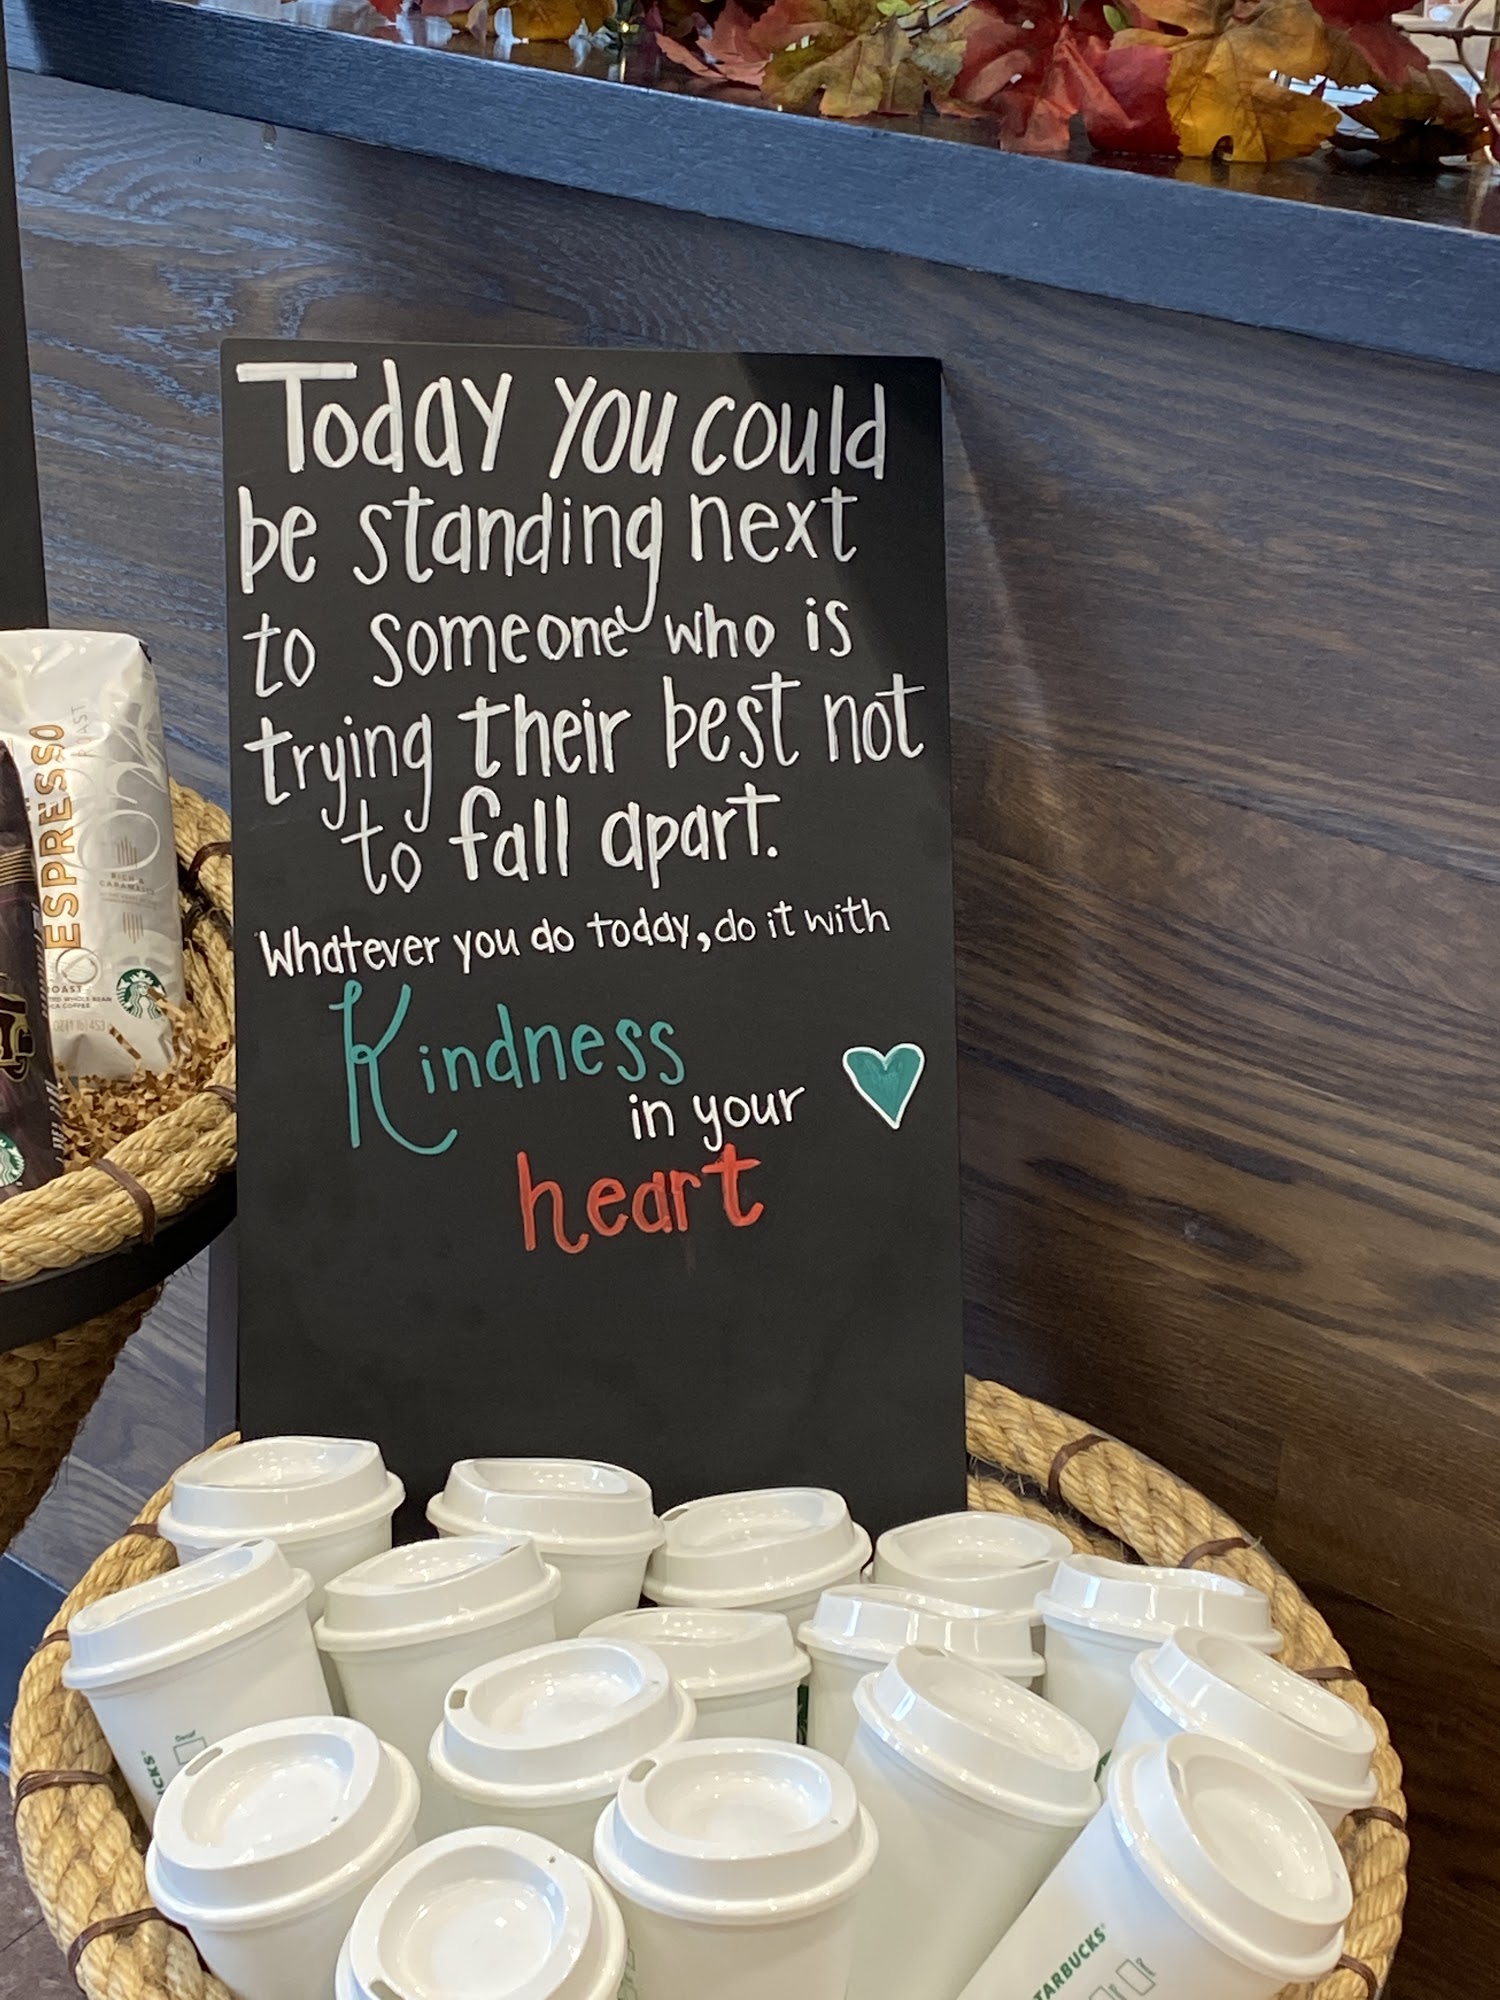 Today you could
be standing next
to someone who is
trying their best not
to fall apart.
Whatever you do today, do it with
Kindness
in your
heart
ESPRESSO
ROAST
RICH &
OAST
STARBUCKS
Decaf